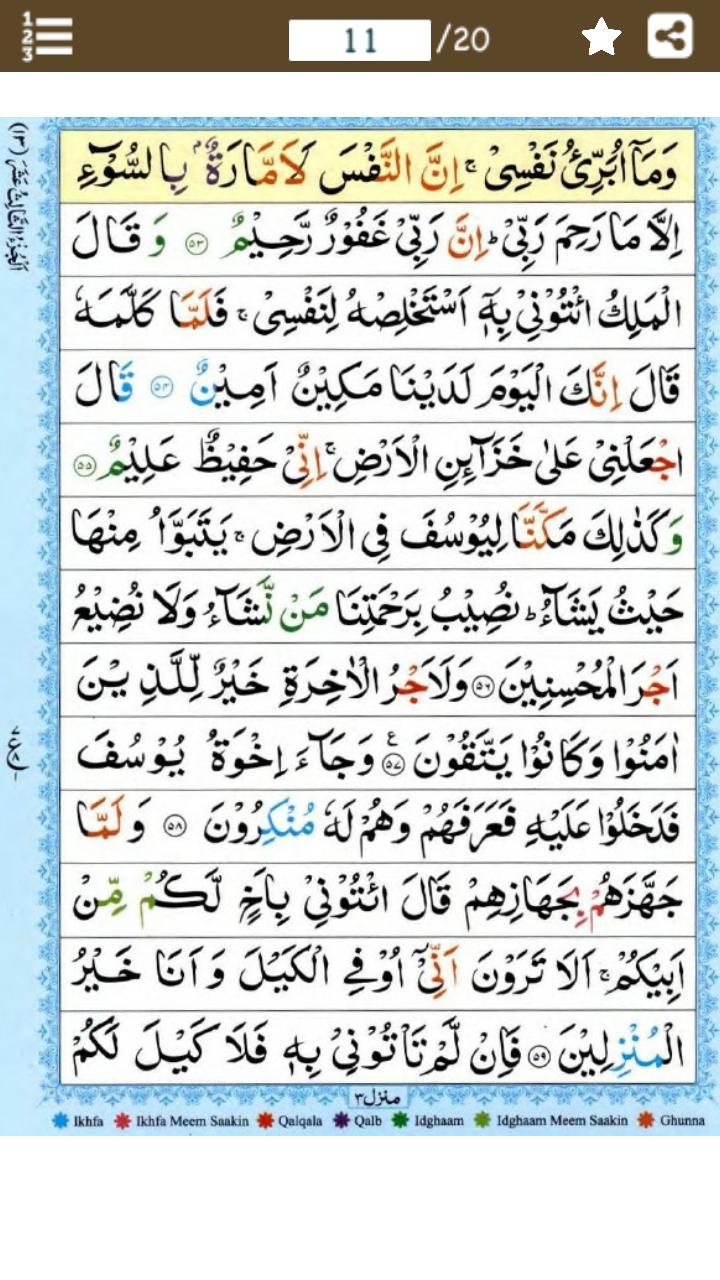 1 2 3
11 /20
اَلْجُزْءُ الثَّالِثُ عَشَرَ (١٣)
وَمَاۤ اُبَرِّئُ نَفْسِیْ ۚ اِنَّ النَّفْسَ لَاَمَّارَةٌۢ بِالسُّوْٓءِ
اِلَّا مَا رَحِمَ رَبِّیْ ؕ اِنَّ رَبِّیْ غَفُوْرٌ رَّحِیْمٌ ۝٥٣ وَ قَالَ
الْمَلِكُ ائْتُوْنِیْ بِهٖۤ اَسْتَخْلِصْهُ لِنَفْسِیْ ۚ فَلَمَّا كَلَّمَهٗ
قَالَ اِنَّكَ الْیَوْمَ لَدَیْنَا مَكِیْنٌ اَمِیْنٌ ۝٥٤ قَالَ
اجْعَلْنِیْ عَلٰی خَزَآىِٕنِ الْاَرْضِ ۚ اِنِّیْ حَفِیْظٌ عَلِیْمٌ ۝٥٥
وَ كَذٰلِكَ مَكَّنَّا لِیُوْسُفَ فِی الْاَرْضِ ۚ یَتَبَوَّاُ مِنْهَا
حَیْثُ یَشَآءُ ؕ نُصِیْبُ بِرَحْمَتِنَا مَنْ نَّشَآءُ وَلَا نُضِیْعُ
اَجْرَ الْمُحْسِنِیْنَ ۝٥٦ وَلَاَجْرُ الْاٰخِرَةِ خَیْرٌ لِّلَّذِیْنَ
اٰمَنُوْا وَكَانُوْا یَتَّقُوْنَ ۝٥٧ ع وَجَآءَ اِخْوَةُ یُوْسُفَ
فَدَخَلُوْا عَلَیْهِ فَعَرَفَهُمْ وَهُمْ لَهٗ مُنْكِرُوْنَ ۝٥٨ وَ لَمَّا
جَهَّزَهُمْ بِجَهَازِهِمْ قَالَ ائْتُوْنِیْ بِاَخٍ لَّكُمْ مِّنْ
اَبِیْكُمْ ۚ اَلَا تَرَوْنَ اَنِّیْۤ اُوْفِی الْكَیْلَ وَ اَنَا خَیْرُ
الْمُنْزِلِیْنَ ۝٥٩ فَاِنْ لَّمْ تَاْتُوْنِیْ بِهٖ فَلَا كَیْلَ لَكُمْ
منزل ٣
Ikhfa Ikhfa Meem Saakin Qalqala Qalb Idghaam Idghaam Meem Saakin Ghunna